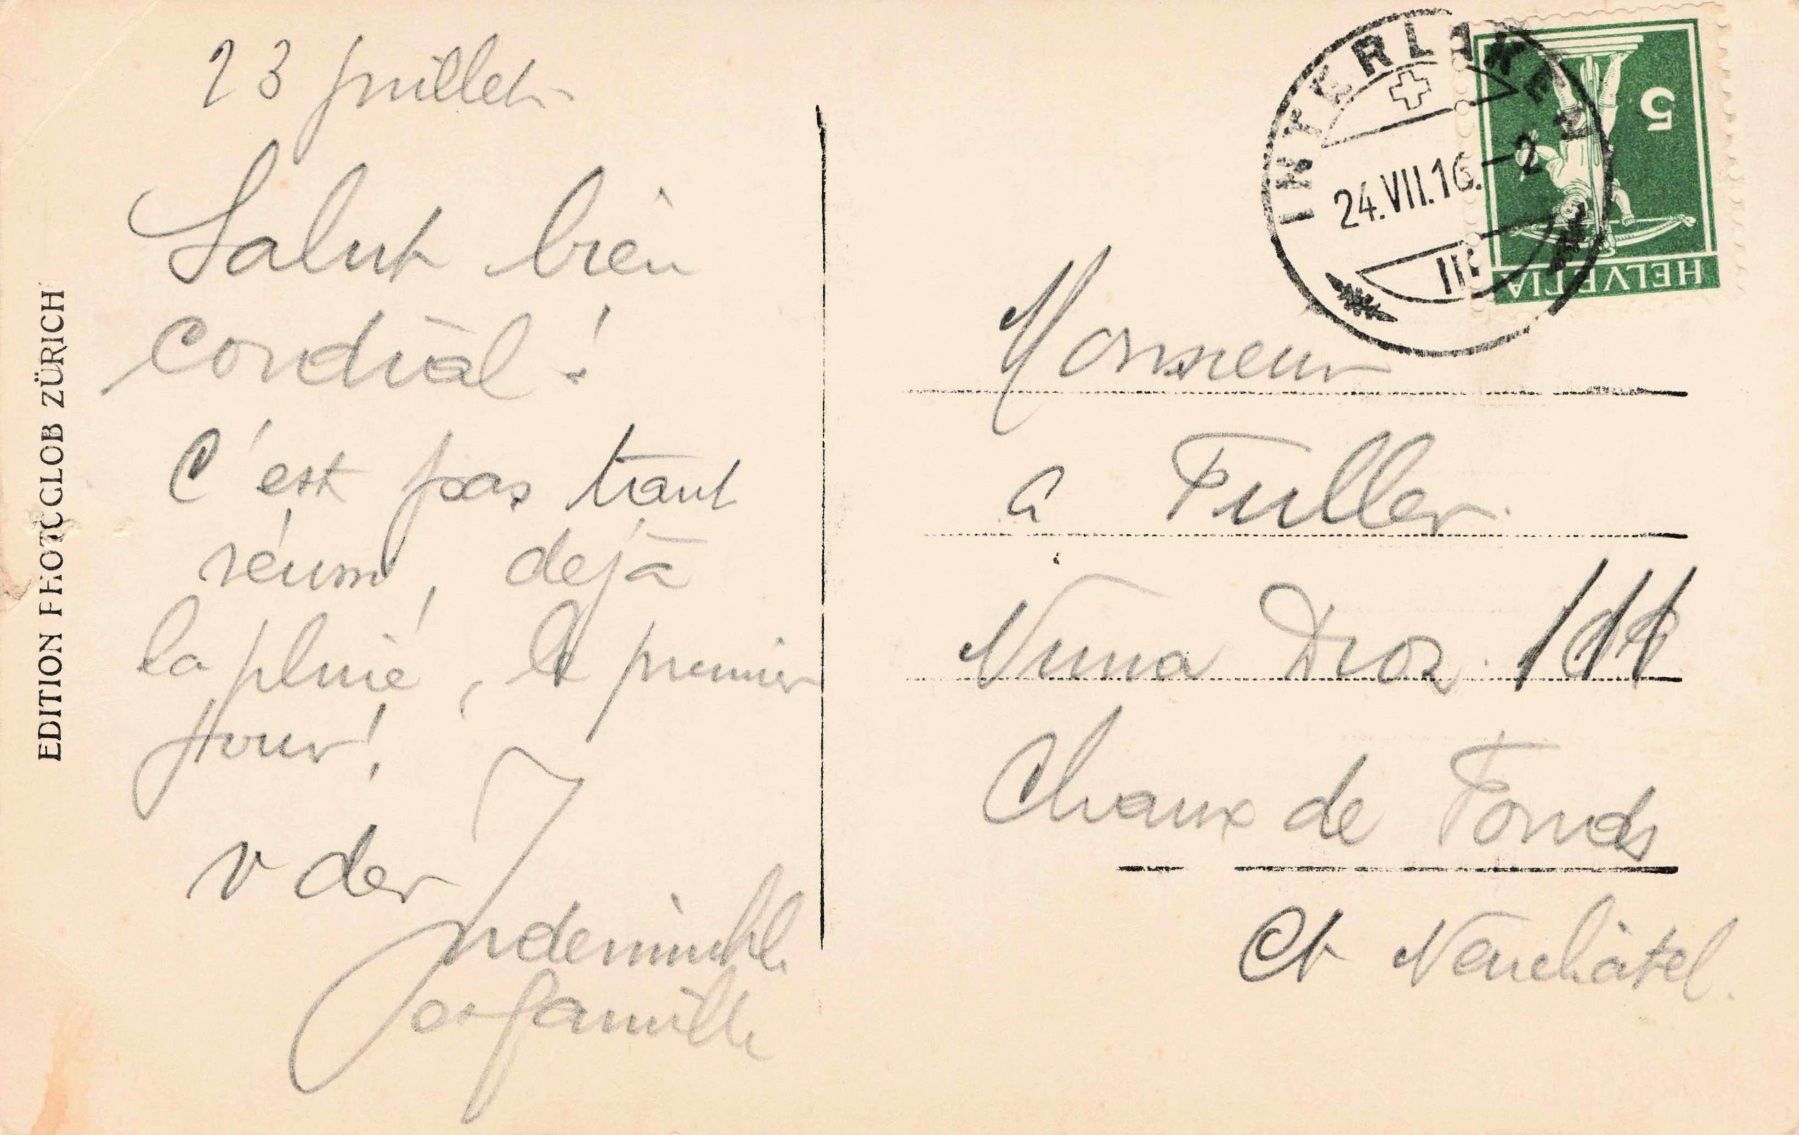 23 juillet
Salut bien
cordial!
C'est pas tant
réussi, dejà
la pluie, le premier
jour!
v der
Indermühle
et famille
EDITION PHOTOGLOB ZÜRICH
INTERLAKEN
24.VII.16.-2
III
5
HELVETIA
Monsieur
A Fuller
Numa Droz
Chaux de Fonds
Ct Neuchâtel.